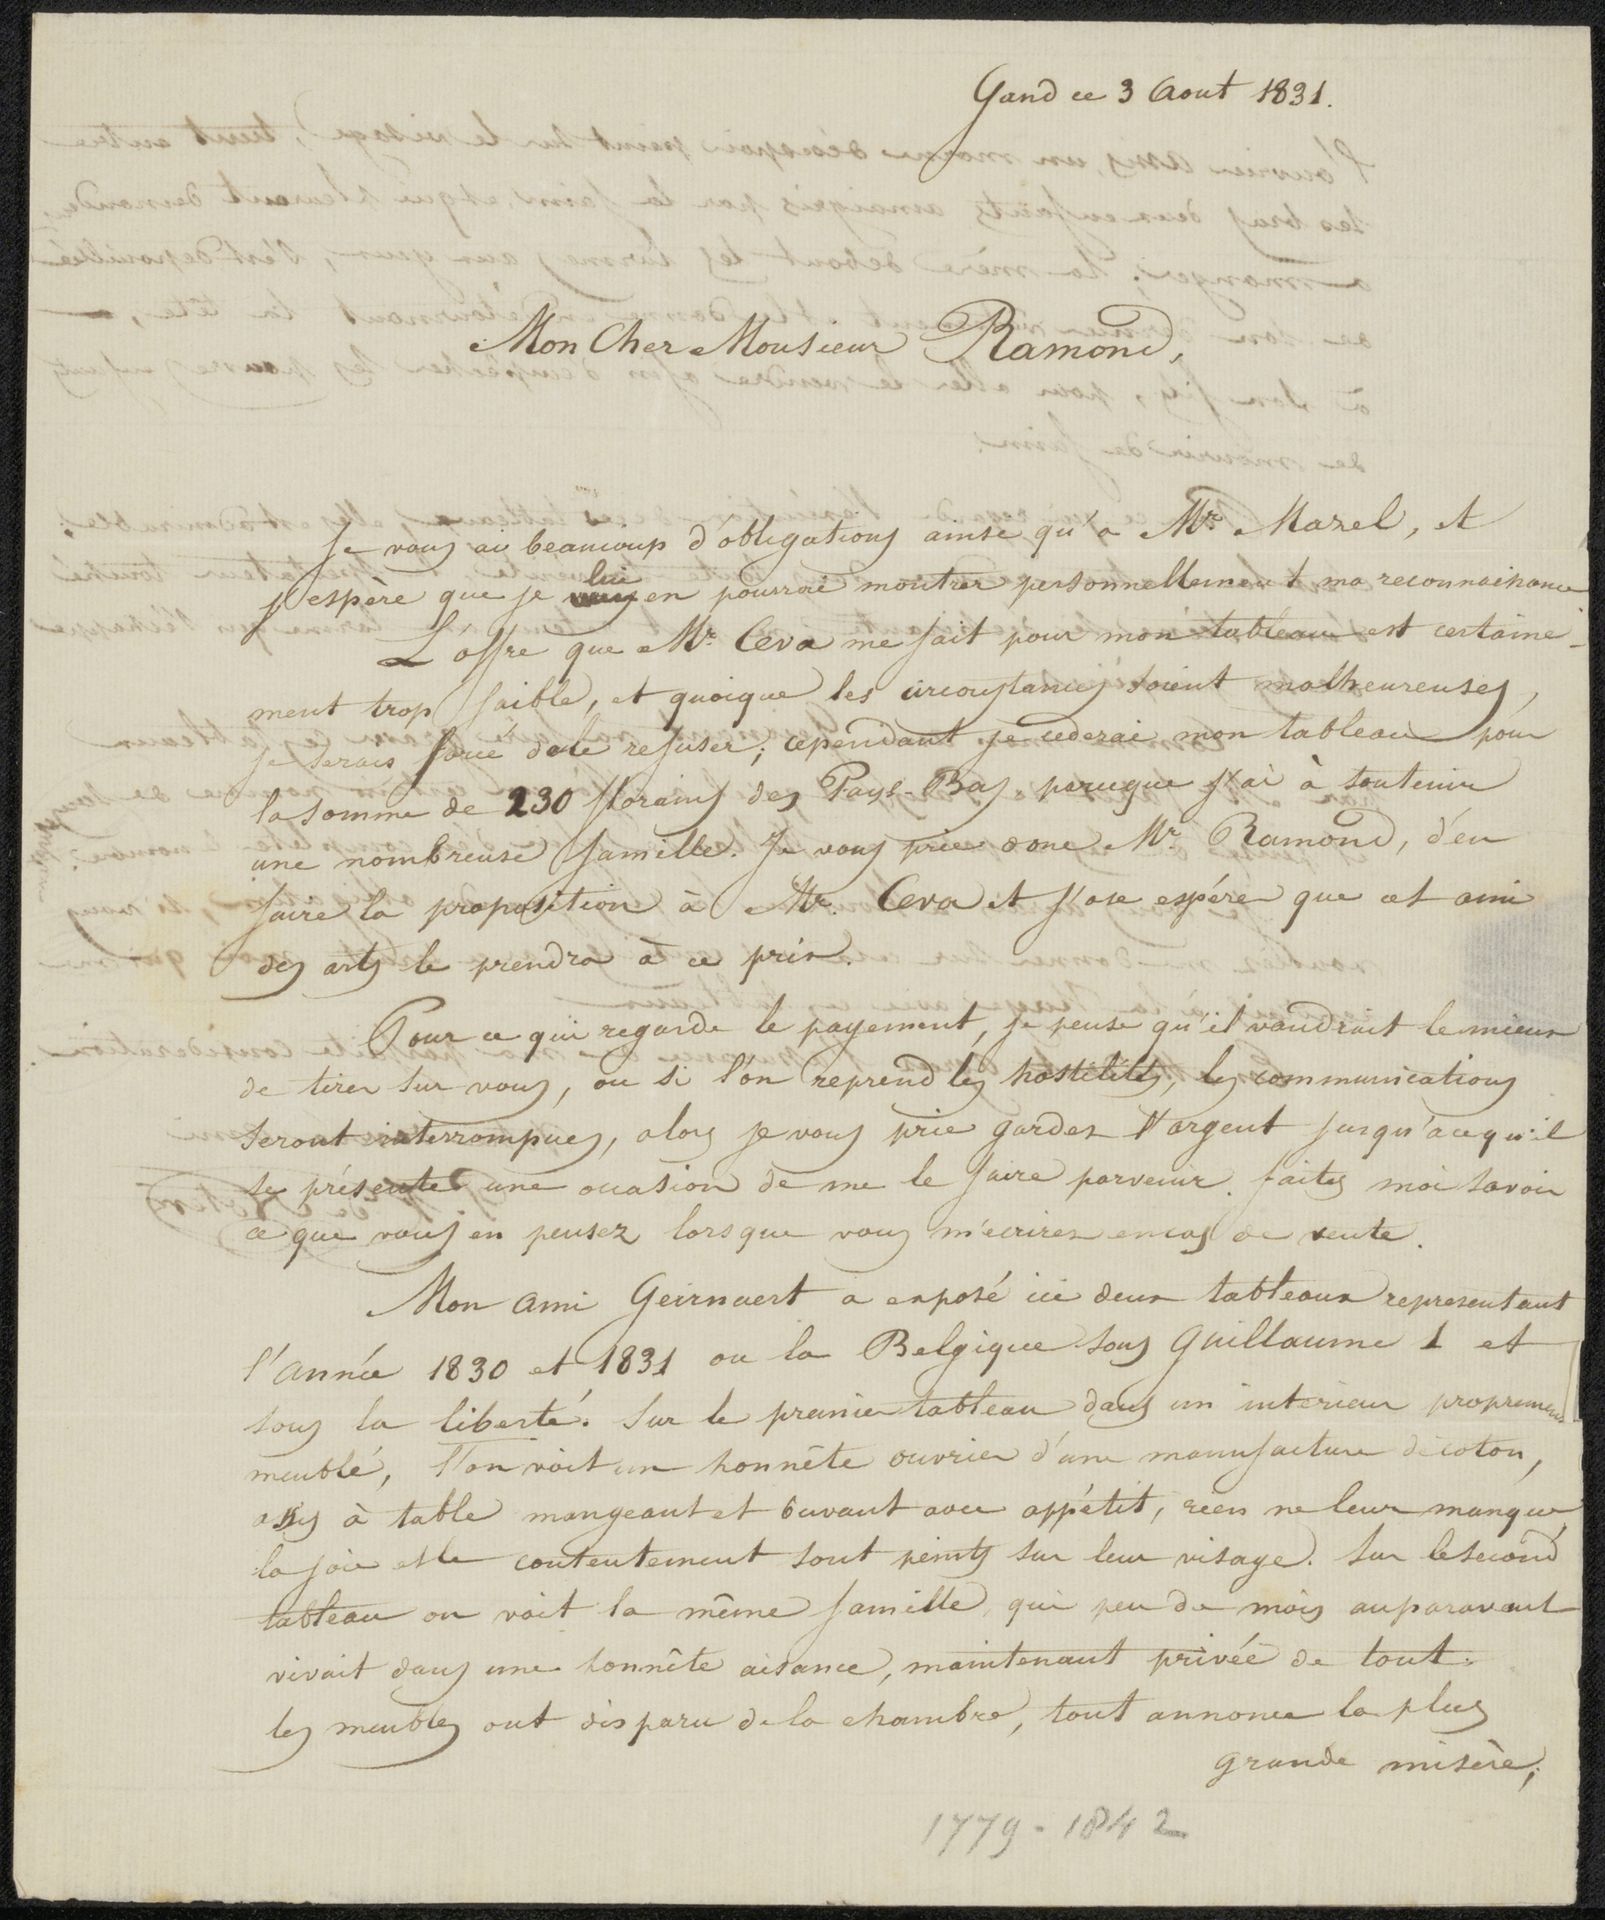 Gand ce 3 Aout 1831.
Mon Cher Monsieur Ramond,
Je vous ai beaucoup d'obligations ainsi qu'a Mr. Mazel, et
j'espère que je lui en pourrai montrer personnellement ma reconnaissance
L'offre que Mr. Ceva me fait pour mon tableau est certaine-
ment trop faible, et quoique les circonstances soient malheureuses,
je serais forcé de le refuser; cependant je cederai mon tableau pour
la somme de 230 florains des Pays-Bas, parceque j'ai à soutenir
une nombreuse famille. Je vous prie donc Mr. Ramond, d'en
faire la proposition à Mr. Ceva et j'ose espérer que cet ami
des arts le prendra à ce prix.
Pour ce qui regarde le payement, je pense qu'il vaudrait le mieux
de tirer sur vous, ou si l'on reprend les hostilités, les communications
seront interrompues, alors je vous prie garder l'argent jusqu'a ce qu'il
se présente une occasion de me le faire parvenir. faites moi savoir
ce que vous en pensez lorsque vous m'écrirez en cas de vente.
Mon ami Geirnaert a exposé ici deux tableaux representant
l'année 1830 et 1831 ou la Belgique sous Guillaume 1 et
sous la liberté. Sur le premier tableau dans un interieur proprement
meublé, l'on voit un honnête ouvrier d'une manufacture de coton,
assis à table mangeant et buvant avec appétit, rien ne leur manque,
la joie et le contentement sont peints sur leur visage. Sur le second
tableau on voit la même famille, qui peu de mois auparavant
vivait dans une honnête aisance, maintenant privée de tout.
les meubles ont disparu de la chambre, tout annonce la plus
grande misère;
1779 - 1842